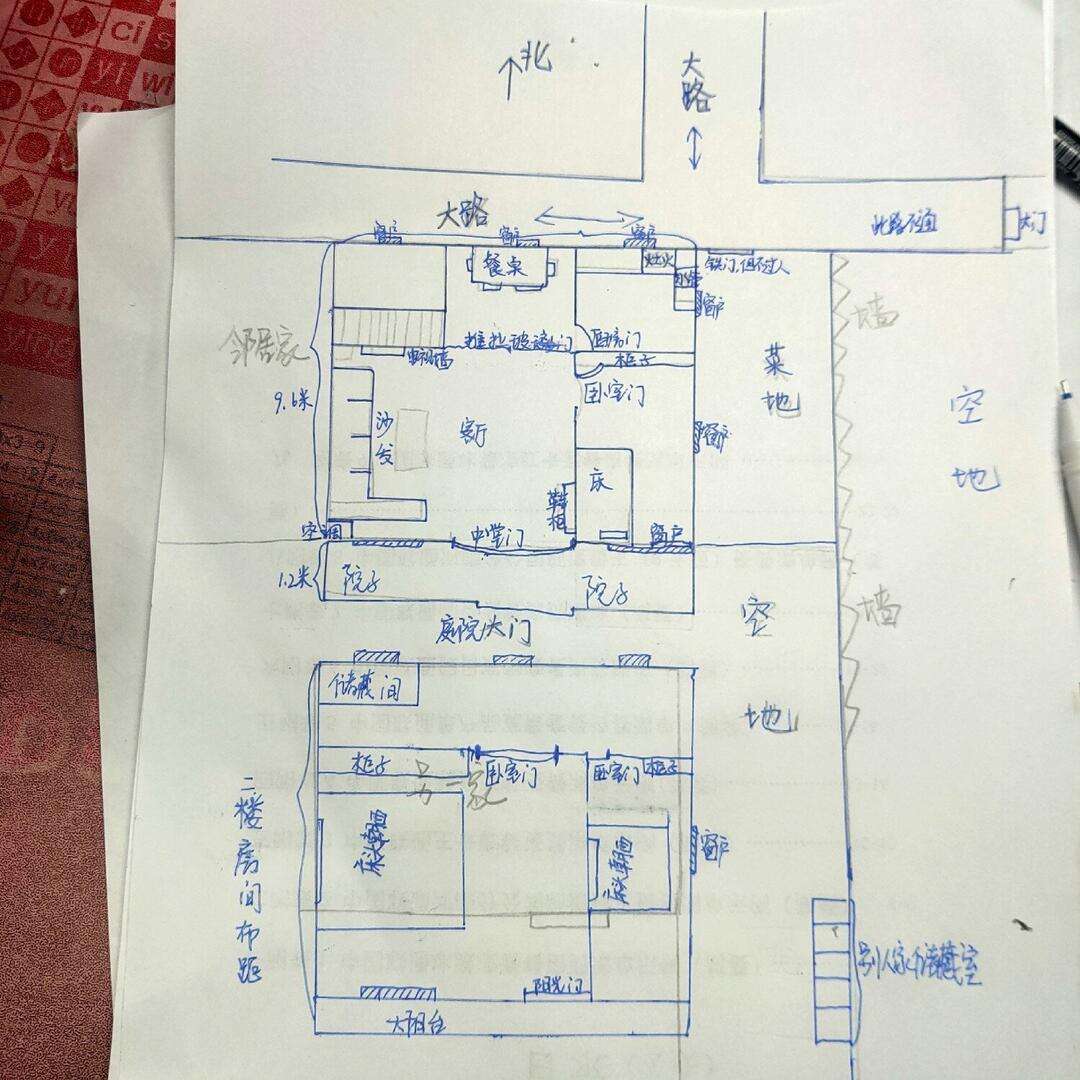 北
大路
大路
此路不通
大门
窗户
窗户
窗户
餐桌
灶火
水管
铁门,但不过人
窗户
邻居家
电视墙
推拉玻璃门
厨房门
柜子
菜地
墙
空地
9.6米
沙发
客厅
卧室门
窗户
床
鞋柜
空调
中堂门
窗户
1.2米
院子
院子
庭院大门
空地
墙
储藏间
柜子
另一家
卧室门
卧室门
柜子
二楼房间布距
窗户
别人家储藏室
阳光门
大阳台